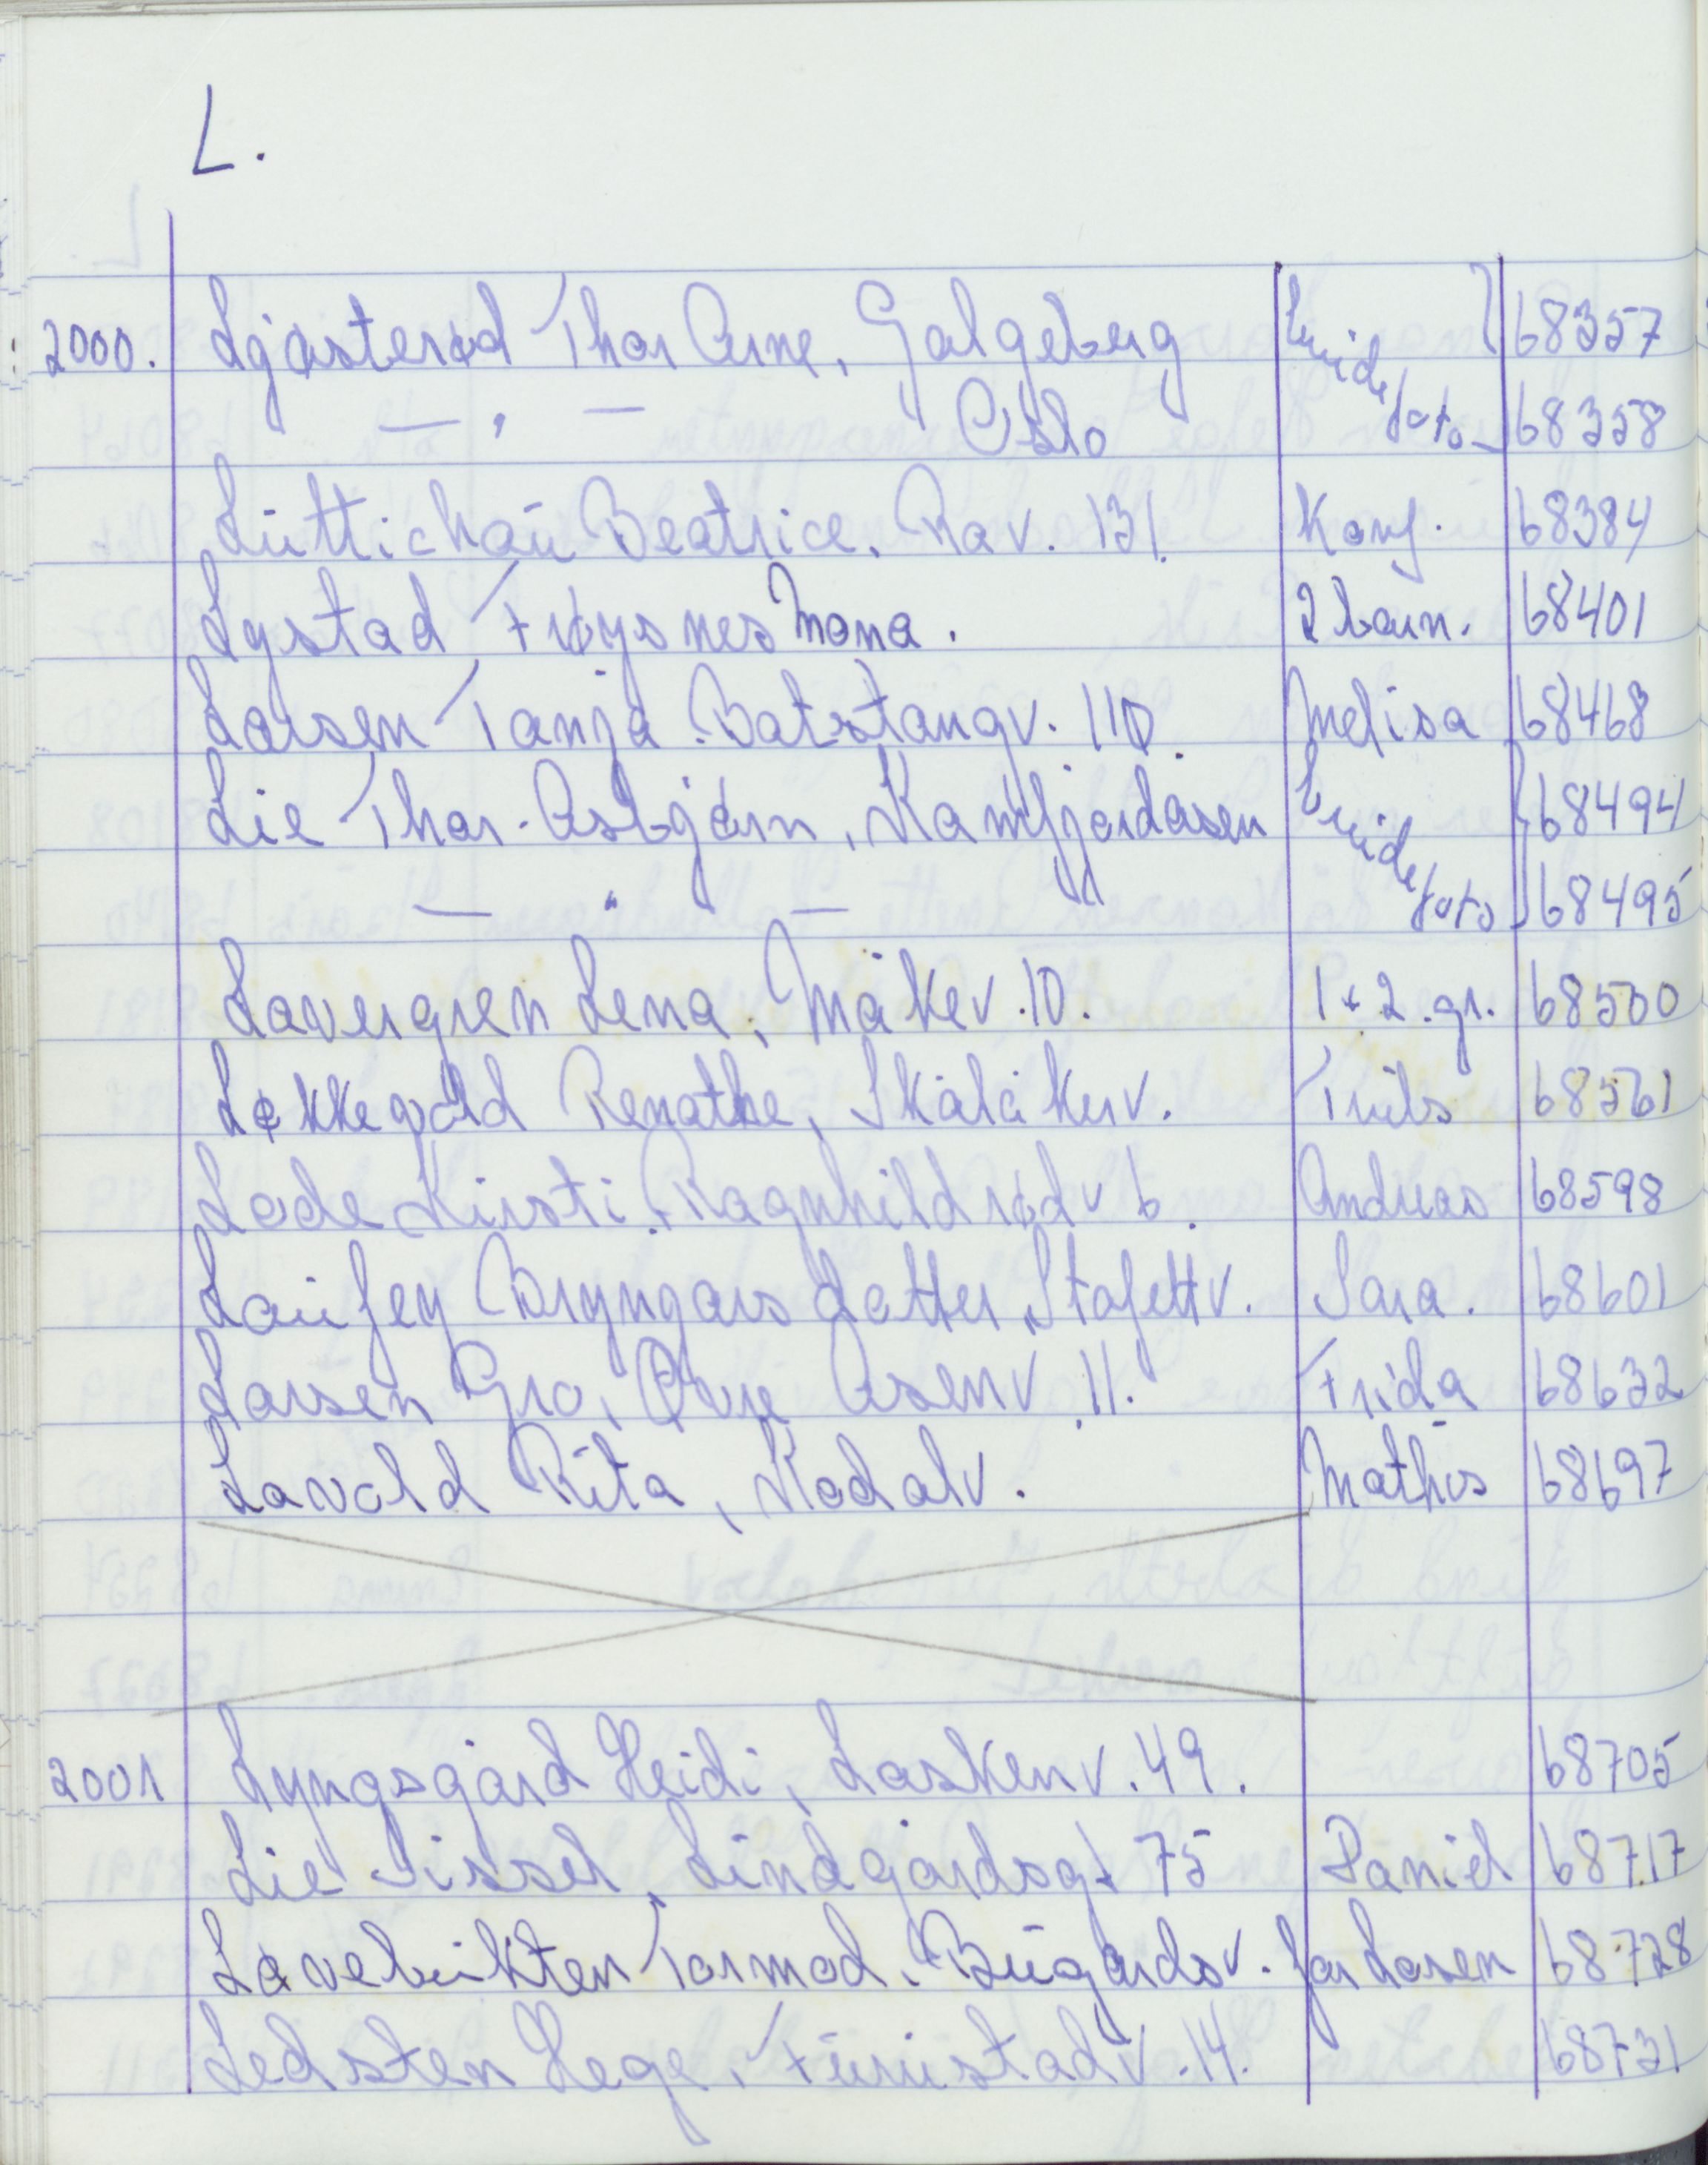 L.
2000. Ljøsterød Thor Arne, Galgeberg Brude 68357
— " — Oslo foto 68358
Lüttichaü Beatrice, Rav. 131. Konf. 68384
Lystad Frøysnes Mona. 2 barn. 68401
Larsen Tanja. Batstangv. 110. Melisa 68468
Lie Thor-Asbjørn, Kamfjordåsen Brude 68494
— " — foto 68495
Lavergren Lena, Måkev. 10. 1+2.gr. 68500
Løkkevold Renathe, Skåläkerv. Truls 68561
Lode Kirsti, Ragnhildrødv 6. Andreas 68598
Laufey Bryngarsdatter, Stafettv. Sara. 68601
Larsen Gro, Øvre Åsenv. 11. Frida 68632
Lavold Rita, Kodalv. Mathis 68697
2001 Lyngsgård Heidi, Laskenv. 49. 68705
Lie Sissel, Lindgårdsgt 75 Daniel 68717
Løvebukten Tormod. Bügårdsv. 68728
Ledsten Hege, Fürüstadv. 14. 68731